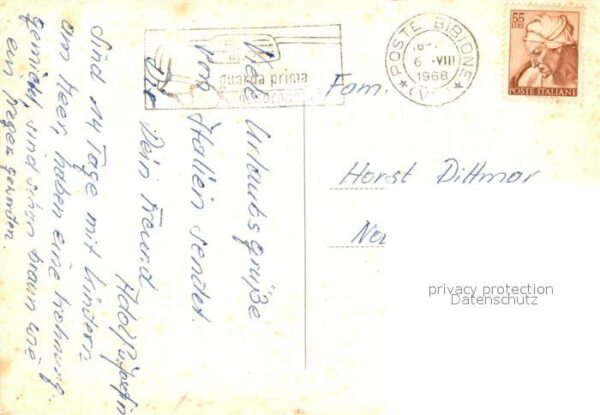 Viele Urlaubsgrüße
von Italien sendet
Dir Dein Freund
Adolf u.
Sind 14 Tage mit Kindern
am Meer, haben eine Wohnung
gemietet, sind schon braun wie
ein Neger geworden.
guarda prima
POSTE BIBIONE
6 VIII
1968
(VE)
55
LIRE
POSTE ITALIANE
Fam.
Horst Dittmar
privacy protection
Datenschutz